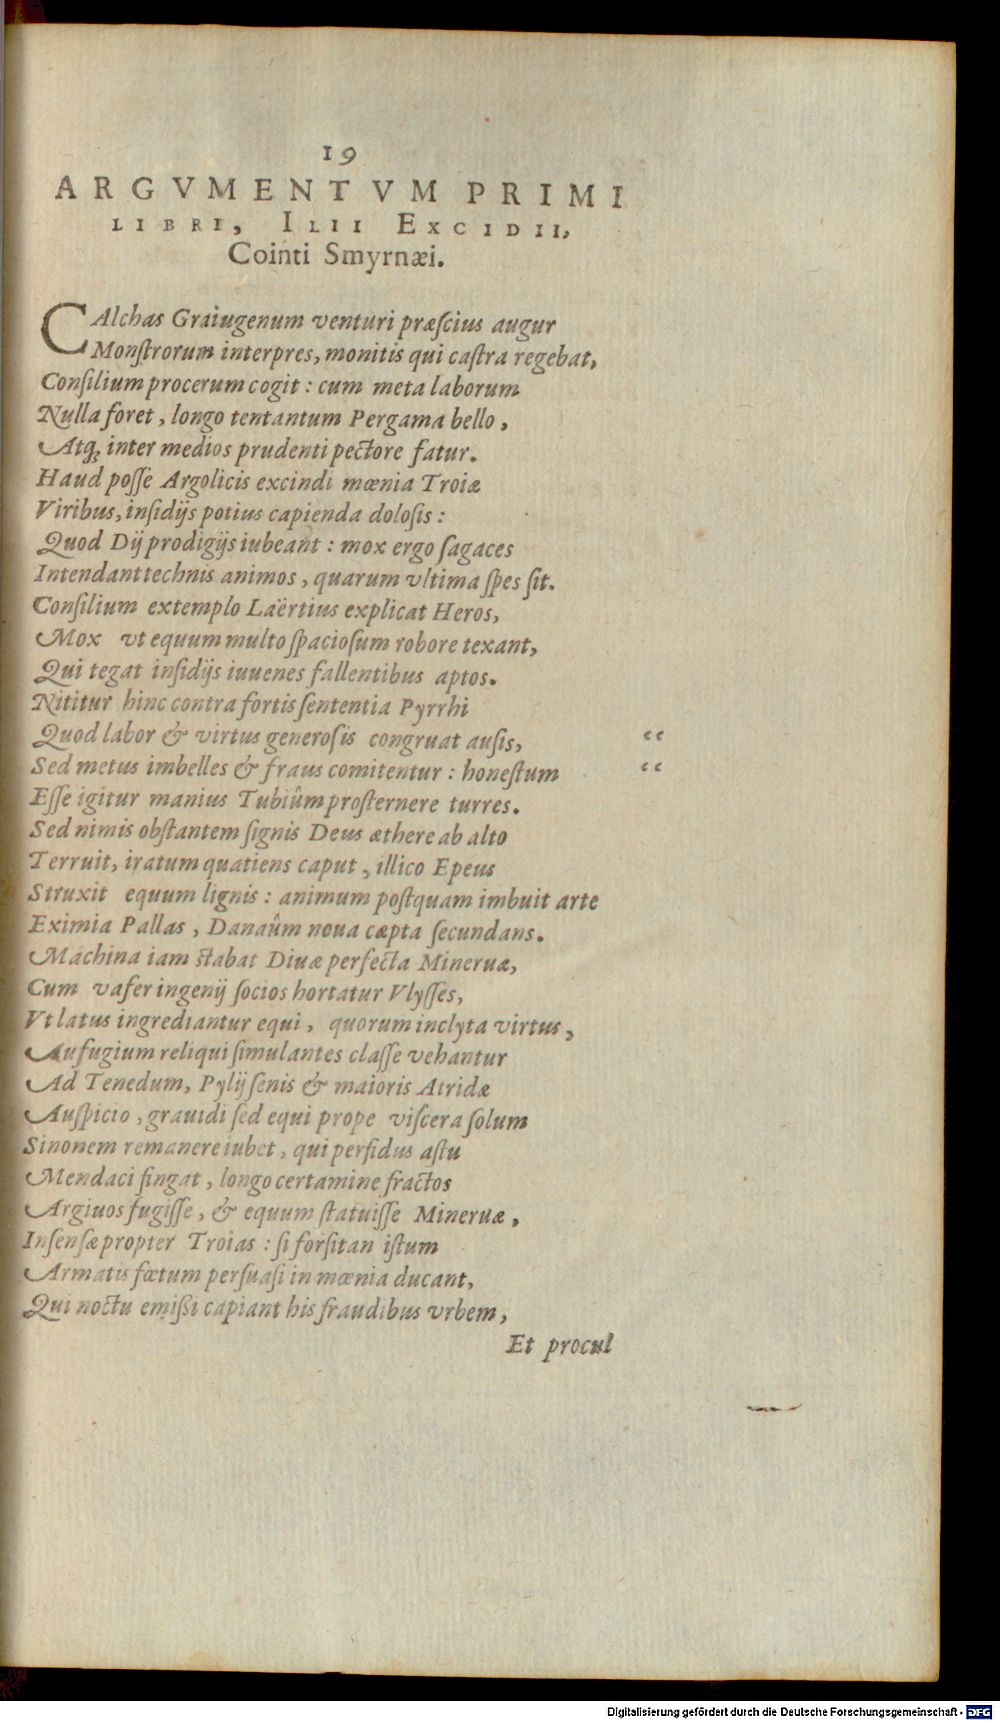 19
ARGVMENTVM PRIMI
LIBRI, ILII EXCIDII,
Cointi Smyrnæi.
CAlchas Graiugenum venturi præſcius augur
Monſtrorum interpres, monitis qui caſtra regebat,
Conſilium procerum cogit : cum meta laborum
Nulla foret, longo tentantum Pergama bello,
Atq; inter medios prudenti pectore fatur.
Haud poſſe Argolicis excindi mœnia Troiæ
Viribus, inſidijs potius capienda doloſis :
Quod Dij prodigijs iubeant : mox ergo ſagaces
Intendant technis animos, quarum vltima ſpes ſit.
Conſilium extemplo Laërtius explicat Heros,
Mox vt equum multo ſpacioſum robore texant,
Qui tegat inſidijs iuuenes fallentibus aptos.
Nititur hinc contra fortis ſententia Pyrrhi
Quod labor & virtus generoſis congruat auſis, “
Sed metus imbelles & fraus comitentur : honeſtum “
Eſſe igitur manius Tubiûm proſternere turres.
Sed nimis obſtantem ſignis Deus æthere ab alto
Terruit, iratum quatiens caput, illico Epeus
Struxit equum lignis : animum poſtquam imbuit arte
Eximia Pallas, Danaûm noua cæpta ſecundans.
Machina iam ſtabat Diuæ perfecta Mineruæ,
Cum vafer ingenij ſocios hortatur Vlyſſes,
Vt latus ingrediantur equi, quorum inclyta virtus,
Aufugium reliqui ſimulantes claſſe vehantur
Ad Tenedum, Pylij ſenis & maioris Atridæ
Auſpicio, grauidi ſed equi prope viſcera ſolum
Sinonem remanere iubet, qui perfidus aſtu
Mendaci fingat, longo certamine fractos
Argiuos fugiſſe, & equum ſtatuiſſe Mineruæ,
Infenſæ propter Troias : ſi forſitan iſtum
Armatis fœtum perſuaſi in mœnia ducant,
Qui noctu emißi capiant his fraudibus vrbem,
Et procul
Digitalisierung gefördert durch die Deutsche Forschungsgemeinschaft - DFG